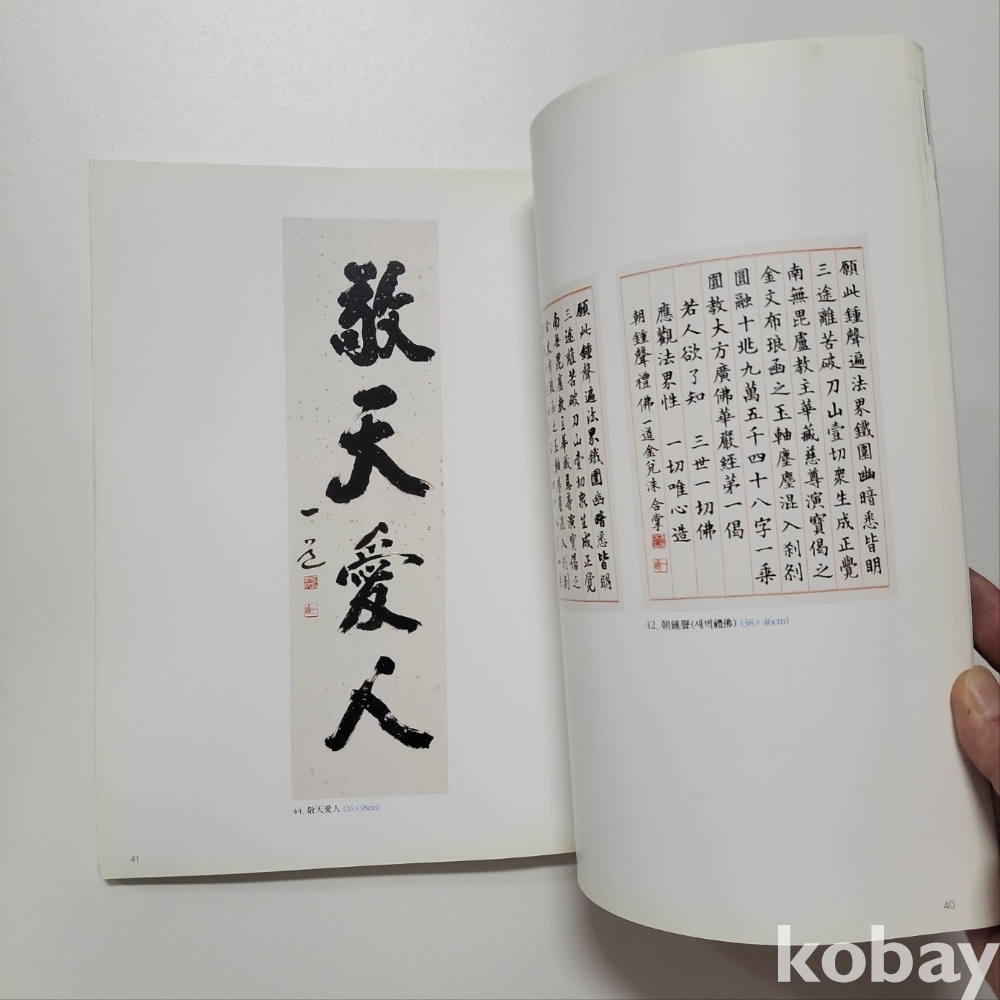 願此鍾聲遍法界鐵圍幽暗悉皆明
三途離苦破刀山壹切衆生成正覺
南無毘盧教主華藏慈尊演寶偈之
金文布琅函之玉軸塵塵混入刹刹
圓融十兆九萬五千四十八字一乗
圓教大方廣佛華嚴經第一偈
若人欲了知 三世一切佛
應觀法界性 一切唯心造
朝鍾聲禮佛 一道金兌洙 合掌
42. 朝鍾聲(새벽禮佛) (38×46cm)
40
願此鍾聲遍法界鐵圍幽暗悉皆明
三途離苦破刀山壹切衆生成正覺
南無毘盧教主華藏慈尊演寶偈之
敬天愛人
一道
44. 敬天愛人 (26×98cm)
41
kobay